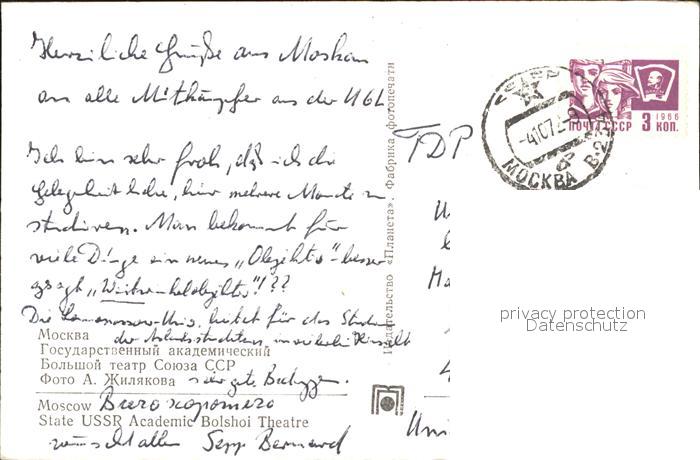 Herzliche Grüße aus Moskau
an alle Mitkämpfer aus der UGL
Ich bin sehr froh, daß ich die
Gelegenheit habe, hier mehrere Monate zu
studieren. Man bekommt für
viele Dinge ein neues „Objektiv" - besser
gesagt „Weitwinkelobjektiv"!??
Die Lomonossow-Uni. bietet für das Studium
der Auslandsstudenten in vielerlei Hinsicht
sehr gute Bedingungen.
Всего хорошего
wünscht allen Sepp Bernard
Москва
Государственный академический
Большой театр Союза ССР
Фото А. Жилякова
Moscow
State USSR Academic Bolshoi Theatre
Издательство «Планета». Фабрика фотопечати
TDP
ПОЧТА СССР 3 КОП.
1966
МОСКВА
Uni
privacy protection
Datenschutz